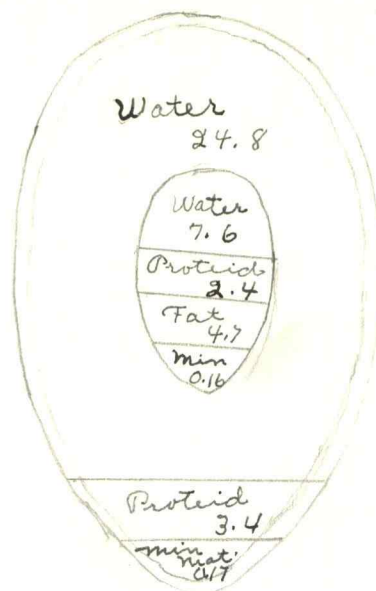 Water
24.8
Water
7.6
Proteid
2.4
Fat
4.7
Min
0.16
Proteid
3.4
Min
Mat.
0.17